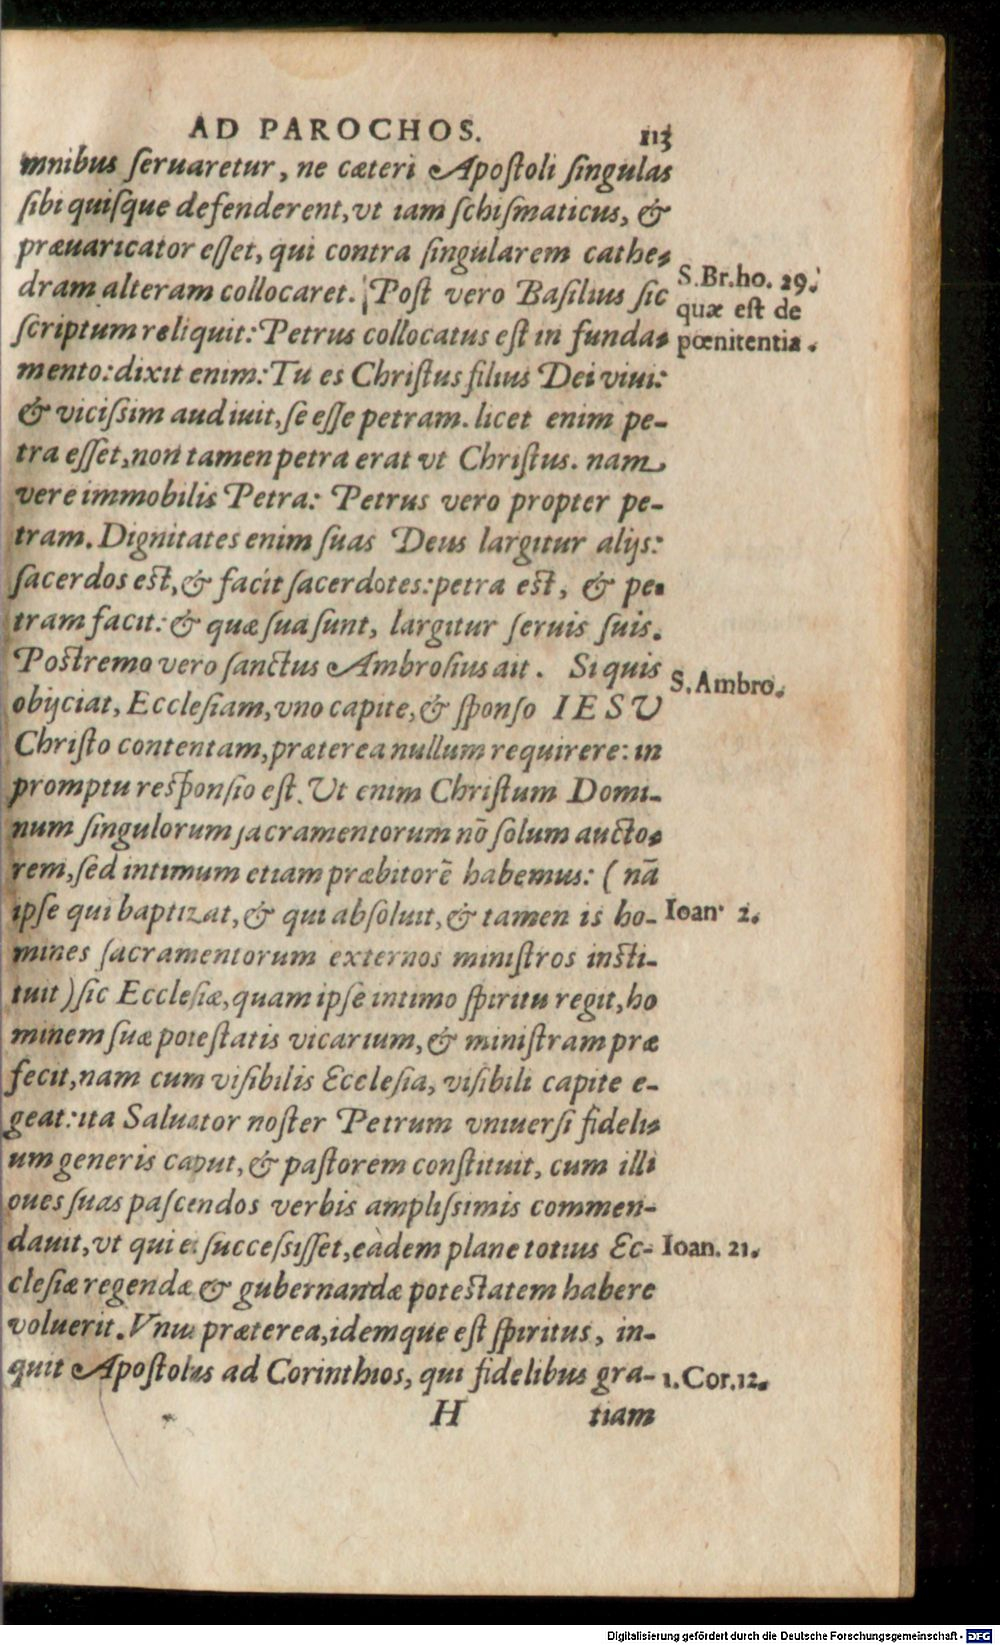 AD PAROCHOS. 113
mnibus ſeruaretur, ne cæteri Apoſtoli ſingulas
ſibi quiſque defenderent, vt iam ſchiſmaticus, &
præuaricator eſſet, qui contra ſingularem cathe-
dram alteram collocaret. Poſt vero Baſilius ſic
S.Br.ho. 29.
ſcriptum reliquit: Petrus collocatus eſt in funda-
quæ eſt de
pœnitentia.
mento: dixit enim: Tu es Chriſtus filius Dei viui:
& viciſsim audiuit, ſe eſſe petram. licet enim pe-
tra eſſet, non tamen petra erat vt Chriſtus. nam
vere immobilis Petra: Petrus vero propter pe-
tram. Dignitates enim ſuas Deus largitur alijs:
ſacerdos eſt, & facit ſacerdotes: petra eſt, & pe-
tram facit: & quæ ſua ſunt, largitur ſeruis ſuis.
Poſtremo vero ſanctus Ambroſius ait. Si quis
S. Ambro.
obijciat, Eccleſiam, vno capite, & ſponſo IESV
Chriſto contentam, præterea nullum requirere: in
promptu reſponſio eſt. Vt enim Chriſtum Domi-
num ſingulorum ſacramentorum nō ſolum aucto-
rem, ſed intimum etiam præbitorē habemus: (nā
ipſe qui baptizat, & qui abſoluit, & tamen is ho-
Ioan· 2.
mines ſacramentorum externos miniſtros inſti-
tuit) ſic Eccleſiæ, quam ipſe intimo ſpiritu regit, ho
minem ſuæ poteſtatis vicarium, & miniſtram præ
fecit, nam cum viſibilis Eccleſia, viſibili capite e-
geat: ita Saluator noſter Petrum vniuerſi fideli-
um generis caput, & paſtorem conſtituit, cum illi
oues ſuas paſcendos verbis ampliſsimis commen-
dauit, vt qui ei ſucceſsiſſet, eadem plane totius Ec-
Ioan. 21.
cleſiæ regendæ & gubernandæ poteſtatem habere
voluerit. Vnus præterea, idemque eſt ſpiritus, in-
quit Apoſtolus ad Corinthios, qui fidelibus gra-
1.Cor.12.
H tiam
Digitalisierung gefördert durch die Deutsche Forschungsgemeinschaft - DFG